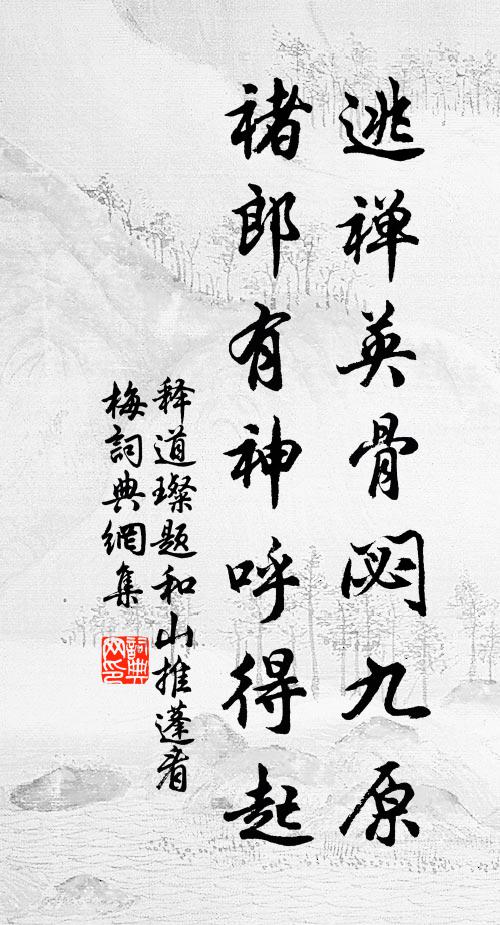 逃禅英骨閟九原
褚郎有神呼得起
释道璨题和山推蓬看
梅詞典網集
詞典